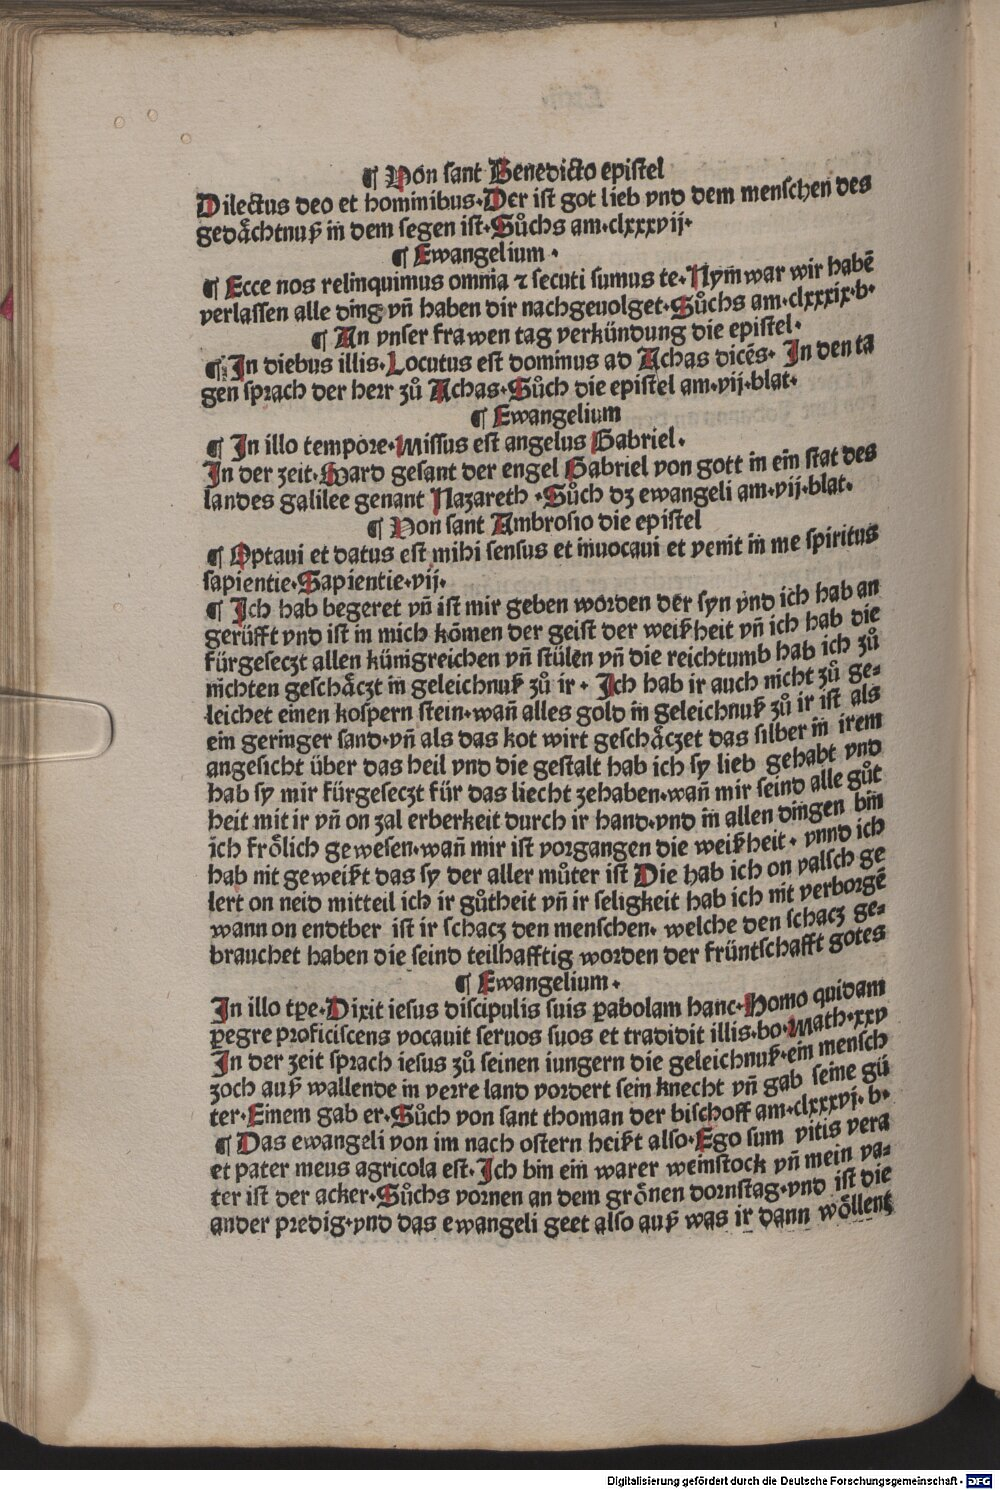 ¶ Von sant Benedicto epistel
Dilectus deo et hominibus·Der ist got lieb vnd dem menschen des
gedåchtnuß in dem segen ist·Sůchs am·clxxxvij·
¶ Ewangelium ·
¶ Ecce nos relinquimus omnia ⁊ secuti sumus te·Nym war wir habē
verlassen alle ding vñ haben dir nachgeuolget·Sůchs am·clxxxix·b·
¶ An vnser frawen tag verkündung die epistel·
¶ In diebus illis·Locutus est dominus ad Achas dicēs· In den ta
gen sprach der herr zů Achas·Sůch die epistel am·vij·blat·
¶ Ewangelium
¶ In illo tempore·Missus est angelus Gabriel·
In der zeit·Ward gesant der engel Gabriel von gott in ein stat des
landes galilee genant Nazareth ·Sůch dz ewangeli am·vij·blat·
¶ Von sant Ambrosio die epistel
¶ Optaui et datus est mihi sensus et inuocaui et venit in me spiritus
sapientie·Sapientie·vij·
¶ Ich hab begeret vñ ist mir geben worden der syn vnd ich hab an
gerüfft vnd ist in mich kōmen der geist der weißheit vñ ich hab die
fürgeseczt allen künigreichen vñ stülen vñ die reichtumb hab ich zů
nichten geschåczt in geleichnuß zů ir · Ich hab ir auch nicht zů ge⸗
leichet einen kospern stein·wañ alles gold in geleichnuß zů ir ist als
ein geringer sand·vñ als das kot wirt geschåczet das silber in irem
angesicht über das heil vnd die gestalt hab ich sy lieb gehabt vnd
hab sy mir fürgeseczt für das liecht zehaben·wañ mir seind alle gůt
heit mit ir vñ on zal erberkeit durch ir hand·vnd in allen dingen bin
ich frölich gewesen·wañ mir ist vorgangen die weißheit · vnnd ich
hab nit geweißt das sy der aller můter ist Die hab ich on valsch ge
lert on neid mitteil ich ir gůtheit vñ ir seligkeit hab ich nit verborgē
wann on endtber ist ir schacz den menschen· welche den schacz ge⸗
brauchet haben die seind teilhafftig worden der früntschafft gotes
¶ Ewangelium·
In illo tp̄e·Dixit iesus discipulis suis ꝑabolam hanc·Homo quidam
ꝑegre proficiscens vocauit seruos suos et tradidit illis·bo·Math·xxv
In der zeit sprach iesus zů seinen iungern die geleichnuß·ein mensch
zoch auß wallende in verre land vordert sein knecht vñ gab seine gü
ter·Einem gab er·Sůch von sant thoman der bischoff am·clxxxvj·b·
¶ Das ewangeli von im nach ostern heißt also·Ego sum vitis vera
et pater meus agricola est·Ich bin ein warer weinstock vñ mein va⸗
ter ist der acker·Sůchs vornen an dem grönen dornstag·vnd ist die
ander predig·vnd das ewangeli geet also auß was ir dann wöllent
Digitalisierung gefördert durch die Deutsche Forschungsgemeinschaft - DFG